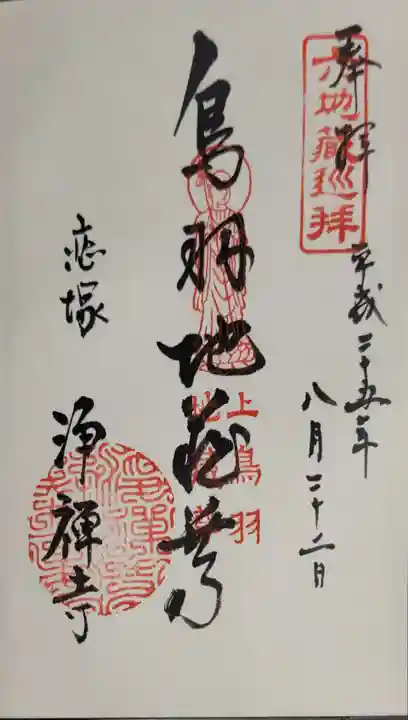 奉拝
六地蔵巡拝
平成二十五年
八月二十二日
鳥羽地蔵尊
上鳥羽
地蔵
恋塚
浄禅寺